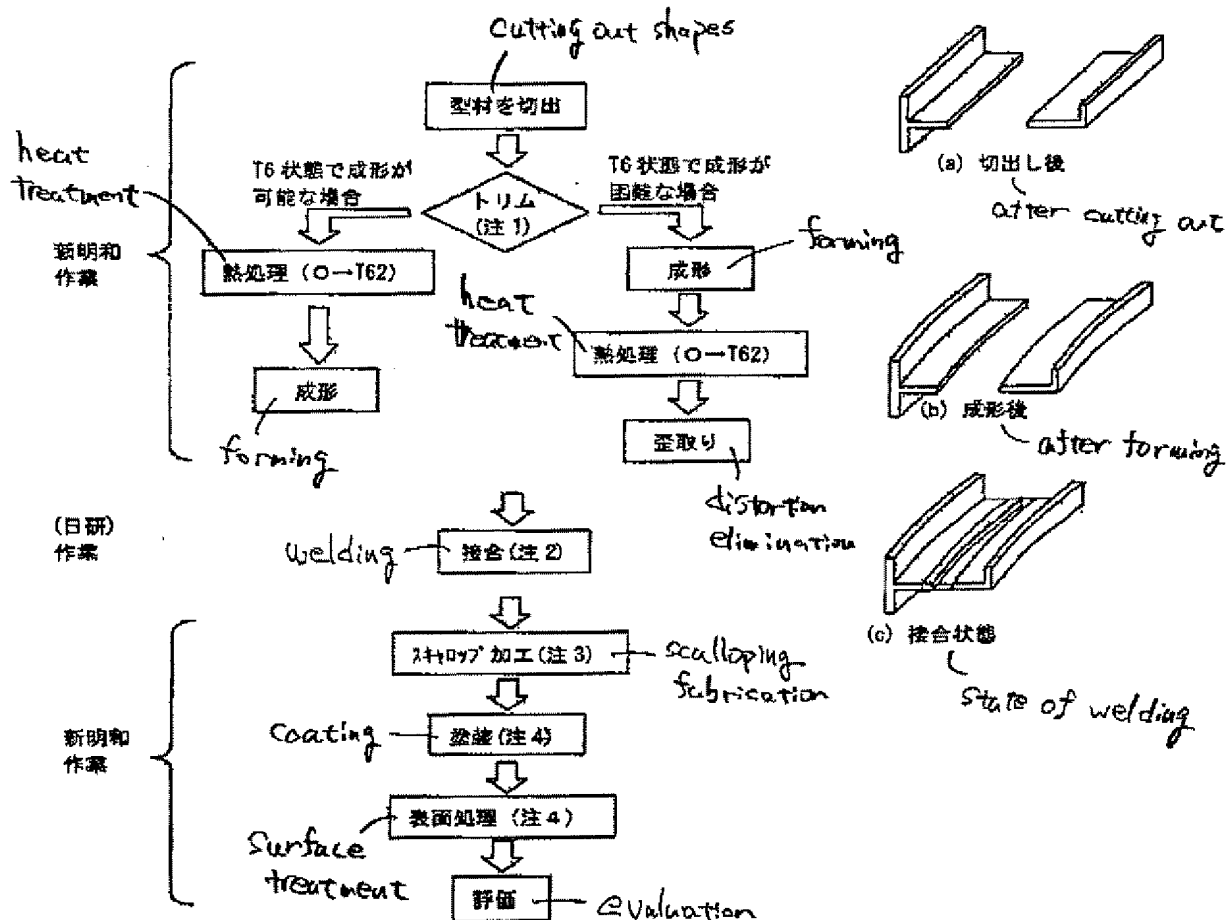 cutting out shapes
型材を切出
heat
treatment
T6 状態で成形が
可能な場合
T6 状態で成形が
困難な場合
トリム
(注1)
新明和
作業
熱処理 (O→T62)
成形
forming
heat
treatment
熱処理 (O→T62)
成形
forming
歪取り
distortion
elimination
(日研)
作業
welding
接合(注2)
新明和
作業
スキャロップ 加工(注3)
scalloping
fabrication
coating
塗装(注4)
表面処理 (注4)
surface
treatment
評価
evaluation
(a) 切出し後
after cutting out
(b) 成形後
after forming
(c) 接合状態
state of welding